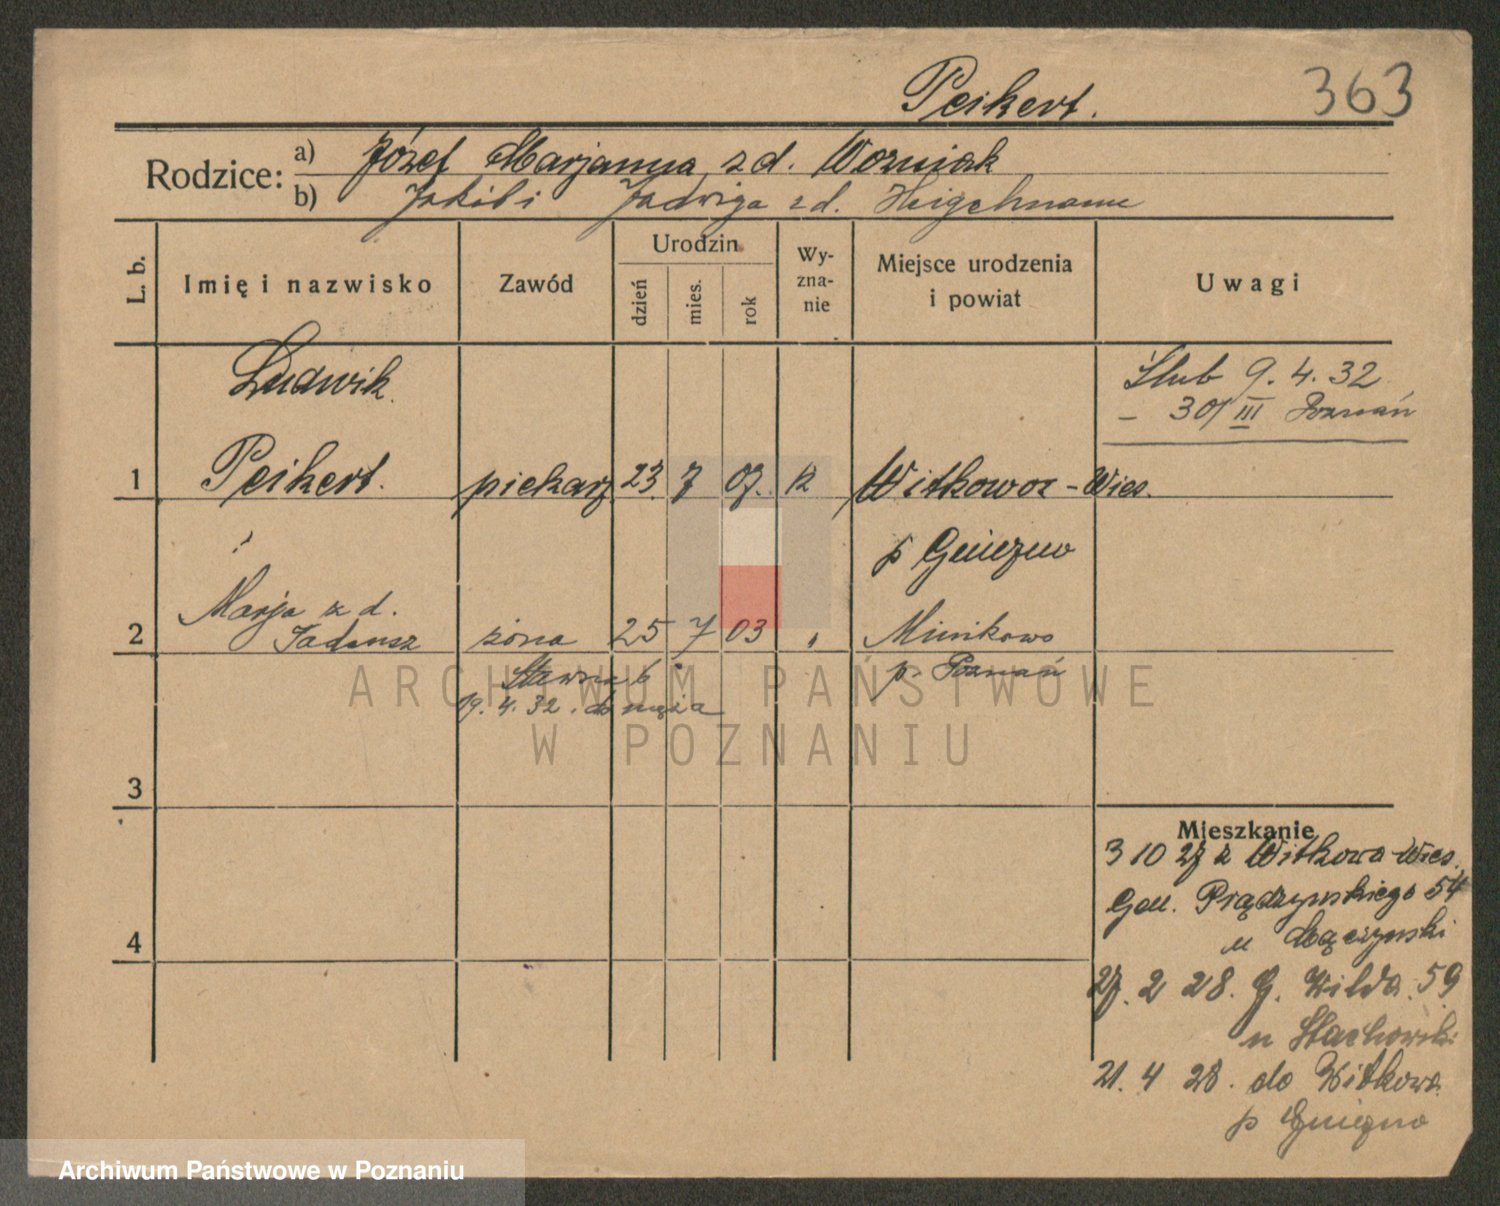 Peikert. 363
Rodzice: a) Józef Marjanna z d. Woźniak
b) Jakób i Jadwiga z d.
L. b. Imię i nazwisko Zawód Urodzin dzień mies. rok Wy-zna-nie Miejsce urodzenia i powiat Uwagi
Ludwik
Ślub 9. 4. 32
- 301/III Poznań
1 Peikert. piekarz 23. 7 07. k Witkowo - Wies.
p Gniezno
2 Marja z d. Tadeusz żona 25 7 03 " Minikowo
p. Poznań
Stawna 6
19. 4. 32. do męża
ARCHIWUM PAŃSTWOWE
W POZNANIU
3
Mieszkanie
3 10 27 z Witkowa-Wies.
Gen. Prądzyńskiego 54
u Mączyński
4
27. 2 28. G. Wilda 59
u Stachowski
21. 4 28. do Witkowa
p Gniezno
Archiwum Państwowe w Poznaniu